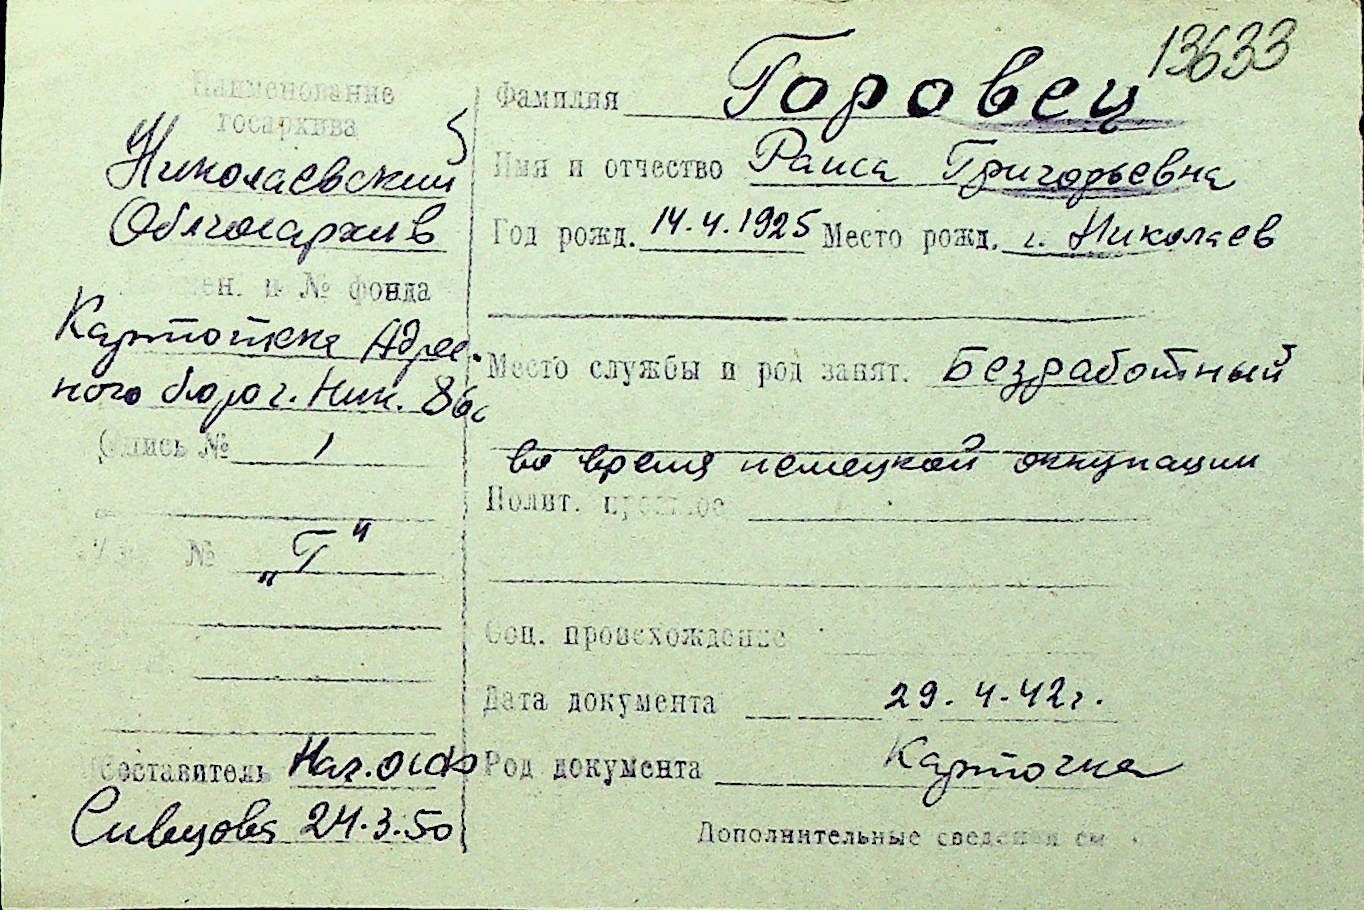 13633
Наименование
госархива
Николаевский
Облгосархив
№ фонда
Картотека Адрес-
ного бюро г. Ник.
Опись № 1
№ „Г"
Составитель
Сивцова 24.3.50
Фамилия Горовец
Имя и отчество Раиса Григорьевна
Год рожд. 14.4.1925 Место рожд. г. Николаев
Место службы и род занят. Безработный
во время немецкой оккупации
Полит. прошлое
Соц. происхождение
Дата документа 29.4.42г.
Род документа Карточка
Дополнительные сведения см